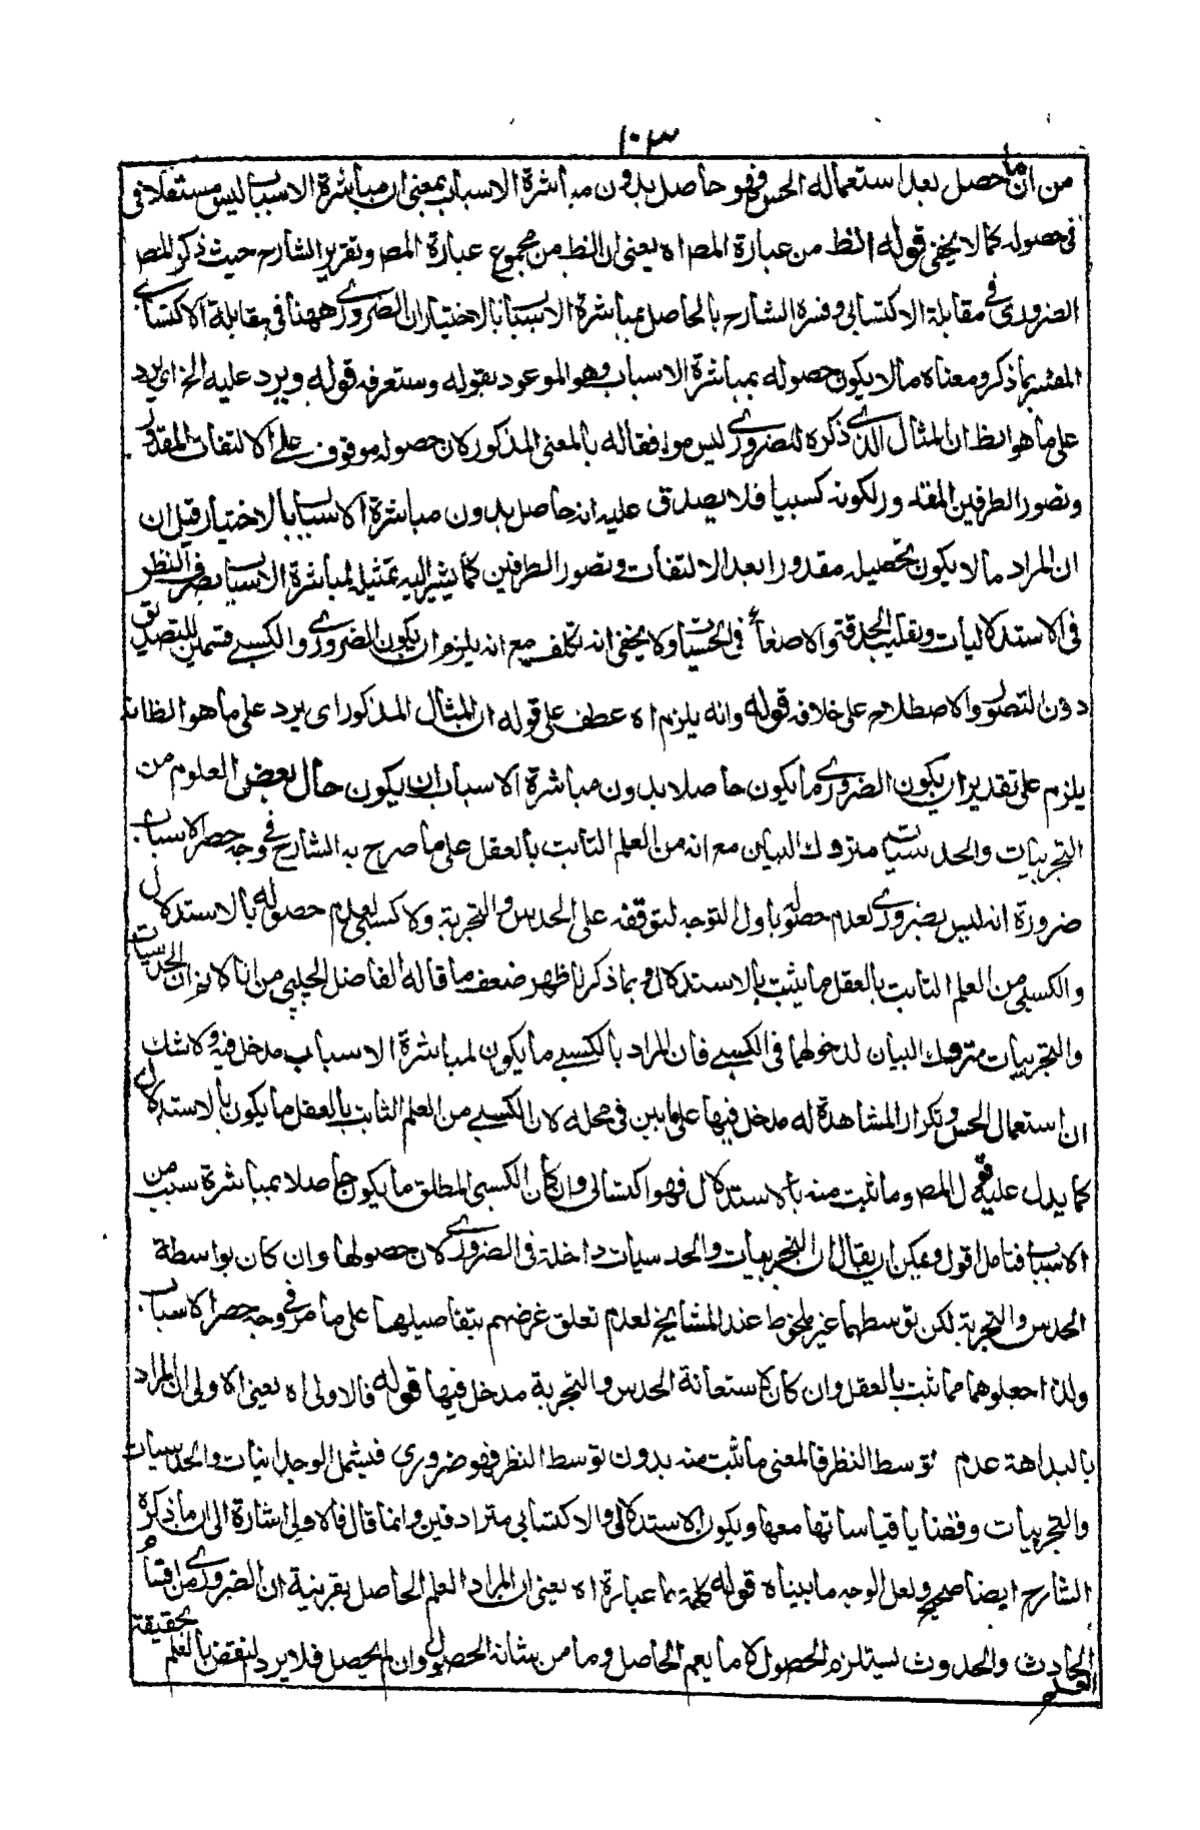 ١٠٣
من ان ما حصل بعد استعماله الحس فهو حاصل بدون مباشرة الاسباب بمعنى ان مباشرة الاسباب ليس مستقلا فى
فى حصوله كما لا يخفى قوله الظ من عبارة المص اه يعنى ان الظ من مجموع عبارة المص وتقرير الشارح حيث ذكر المص
الضرورى فى مقابلة الاكتسابى وفسره الشارح بالحاصل بمباشرة الاسباب بالاختيار ان الضرورى ههنا فى مقابلة الاكتسابى
المفسر بما ذكر ومعناه ما لا يكون حصوله بمباشرة الاسباب وهو الموعود بقوله وستعرفه قوله ويرد عليه الخ اى يرد
على ما هو الظ ان المثال الذى ذكره للضرورى ليس موافقا له بالمعنى المذكور لان حصوله موقوف على الالتفات المقدور
وتصور الطرفين المقدور لكونه كسبيا فلا يصدق عليه انه حاصل بدون مباشرة الاسباب بالاختيار قيل ان
ان المراد ما لا يكون تحصيله مقدورا بعد الالتفات وتصور الطرفين كما يشير اليه تمثيل لمباشرة الاسباب بصرف النظر
فى الاستدلاليات وتقليب الحدقة والاصغاء فى الحسيات ولا يخفى انه تكلف مع انه يلزم ان يكون الضرورى والكسبى قسمين للتصديق
دون التصور والاصطلاح على خلافه قوله وانه يلزم اه عطف على قوله ان المثال المذكور اى يرد على ما هو الظ انه
يلزم على تقدير ان يكون الضرورى ما يكون حاصلا بدون مباشرة الاسباب ان يكون حال بعض العلوم من
التجربيات والحدسيات متروك البيان مع انه من العلم الثابت بالعقل على ما صرح به الشارح فى وجه حصر الاسباب
ضرورة انه ليس بضرورى لعدم حصوله باول التوجه لتوقفه على الحدس والتجربة ولا كسبى لعدم حصوله بالاستدلال
والكسبى من العلم الثابت بالعقل ما يثبت بالاستدلال وبما ذكرنا ظهر ضعف ما قاله الفاضل الچلپى من انا لا نم ان الحدسيات
والتجربيات متروك البيان لدخولهما فى الكسبى فان المراد بالكسبى ما يكون لمباشرة الاسباب مدخل فيه ولا شك
ان استعمال الحس وتكرار المشاهدة له مدخل فيها على ما بين فى محله لان الكسبى من العلم الثابت بالعقل ما يكون بالاستدلال
كما يدل عليه قول المص وما ثبت منه بالاستدلال فهو اكتسابى وان كان الكسبى المطلق ما يكون حاصلا بمباشرة سبب من
الاسباب فتامل اقول ويمكن ان يقال ان التجربيات والحدسيات داخلة فى الضرورى لان حصولها وان كان بواسطة
الحدس والتجربة لكن توسطهما غير ملحوظ عند المشايخ لعدم تعلق غرضهم بتفاصيلهما على ما مر فى وجه حصر الاسباب
ولذا جعلوهما مما ثبت بالعقل وان كان لاستعانة الحدس والتجربة مدخل فيها قوله فالاولى اه يعنى الاولى ان المراد
بالبداهة عدم توسط النظر فالمعنى ما ثبت منه بدون توسط النظر فهو ضرورى فيشمل الوجدانيات والحدسيات
والتجربيات وقضايا قياساتها معها ويكون الاستدلالى والاكتسابى مترادفين وانما قال فالاولى اشارة الى ان ما ذكره
الشارح ايضا صحيح ولعل الوجه ما بيناه قوله كلمة ما عبارة اه يعنى ان المراد العلم الحاصل بقرينة ان الضرورى من اقسام
الحادث والحدوث يستلزم الحصول لا ما يعم الحاصل وما من شانه الحصول وان لم يحصل فلا يرد النقض بالعلم بحقيقته
العلم